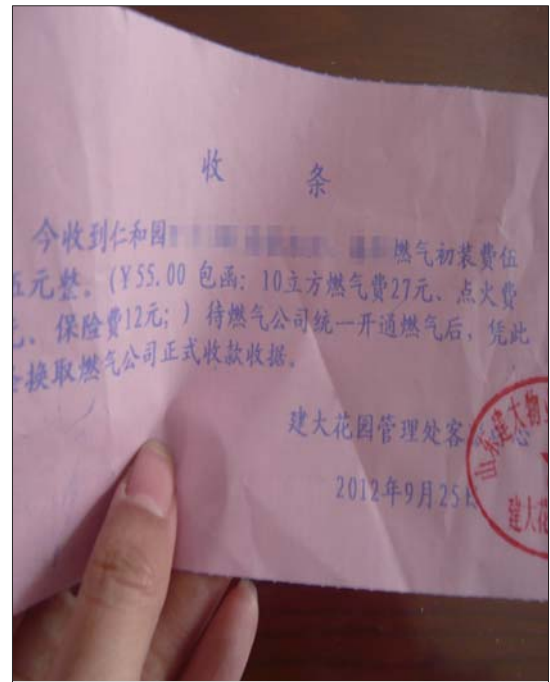 收 条
今收到仁和园 燃气初装费伍
五元整。(¥55.00 包函: 10立方燃气费27元、点火费
元、保险费12元;) 待燃气公司统一开通燃气后, 凭此
条换取燃气公司正式收款收据。
建大花园管理处客
2012年9月25日
山东建大物
建大花